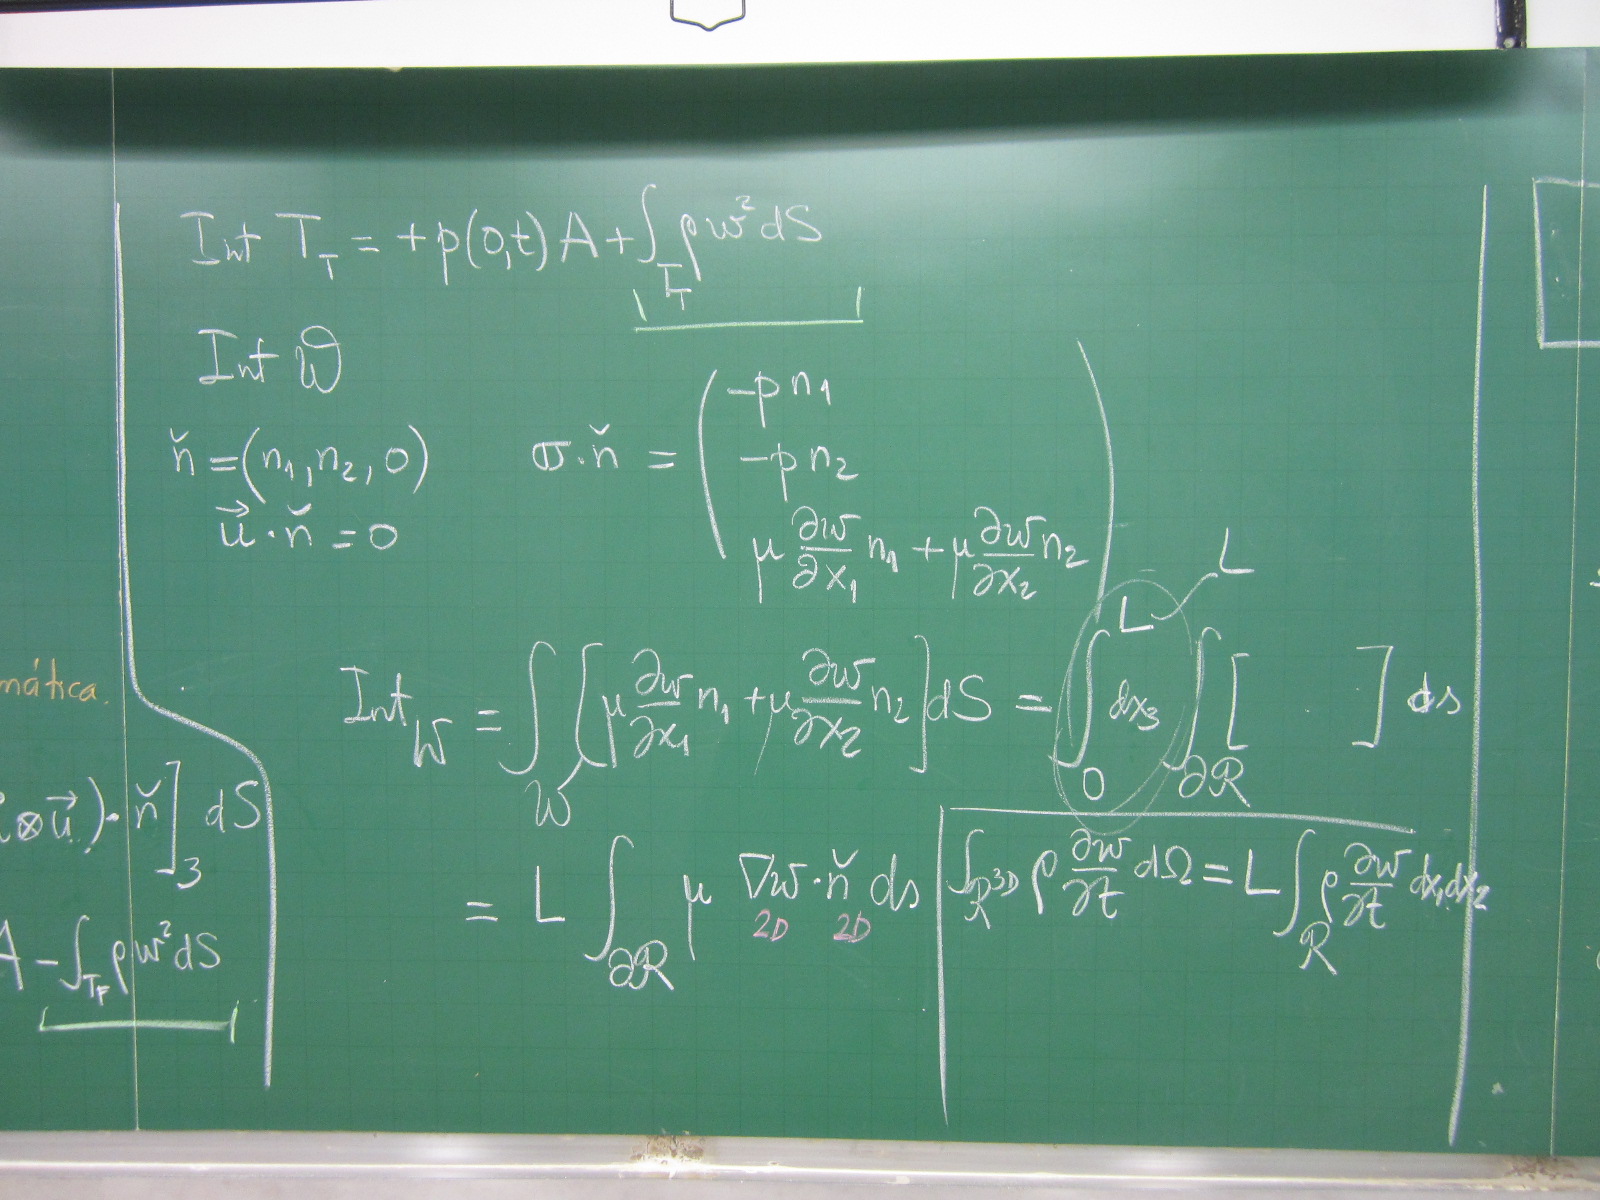 mática.
⊗u⃗)·ň]₃ dS
A - ∫_{T_F} ρw² dS
Int T_T = +p(0,t) A + ∫_{T_T} ρw² dS
Int W
ň = (n₁, n₂, 0)
u⃗·ň = 0
σ·ň = ( -p n₁
-p n₂
μ ∂w/∂x₁ n₁ + μ ∂w/∂x₂ n₂ )
L
Int_W = ∫_W [μ ∂w/∂x₁ n₁ + μ ∂w/∂x₂ n₂] dS = ∫₀^L dx₃ ∫_{∂R} [ ] ds
= L ∫_{∂R} μ ∇w·ň ds
2D 2D
∫_{R^{3D}} ρ ∂w/∂t dΩ = L ∫_R ρ ∂w/∂t dx₁dx₂